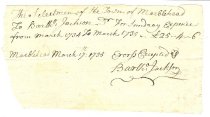 The Selectmen of the Town of Marblehead
To Barthw Jackson Dr For Sundry Expence
from march 1734 To March 1735 £25-4-6
Marblehead March 17. 1735 Errors Excepted
Barthw Jackson